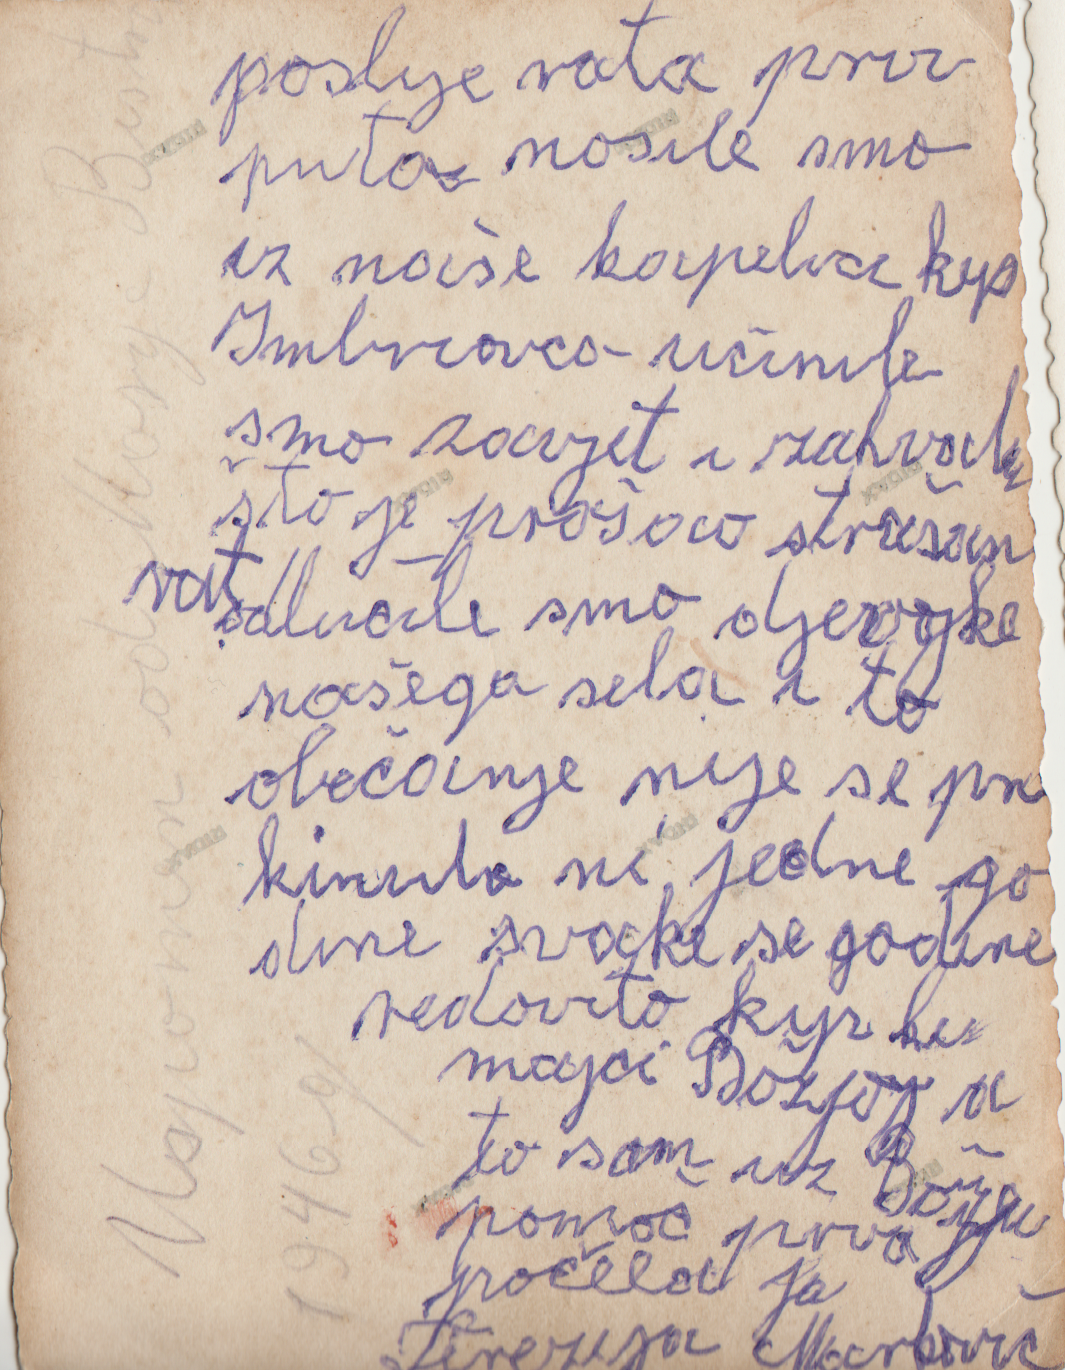 poslije rata prvi
puta nosile smo
iz naiše kapelice kip
Imbriovca učinile
smo zavjet i zahvale
što je prošao strašan
rat
odlučile smo djevojke
našega sela i to
obečanje nije se pre
kinulo ni jedne go
dine svake se godine
redovito kip
majci Božjoj a
to sam uz Božju
pomoč prva
počela ja
Terezija Marković
1946 g